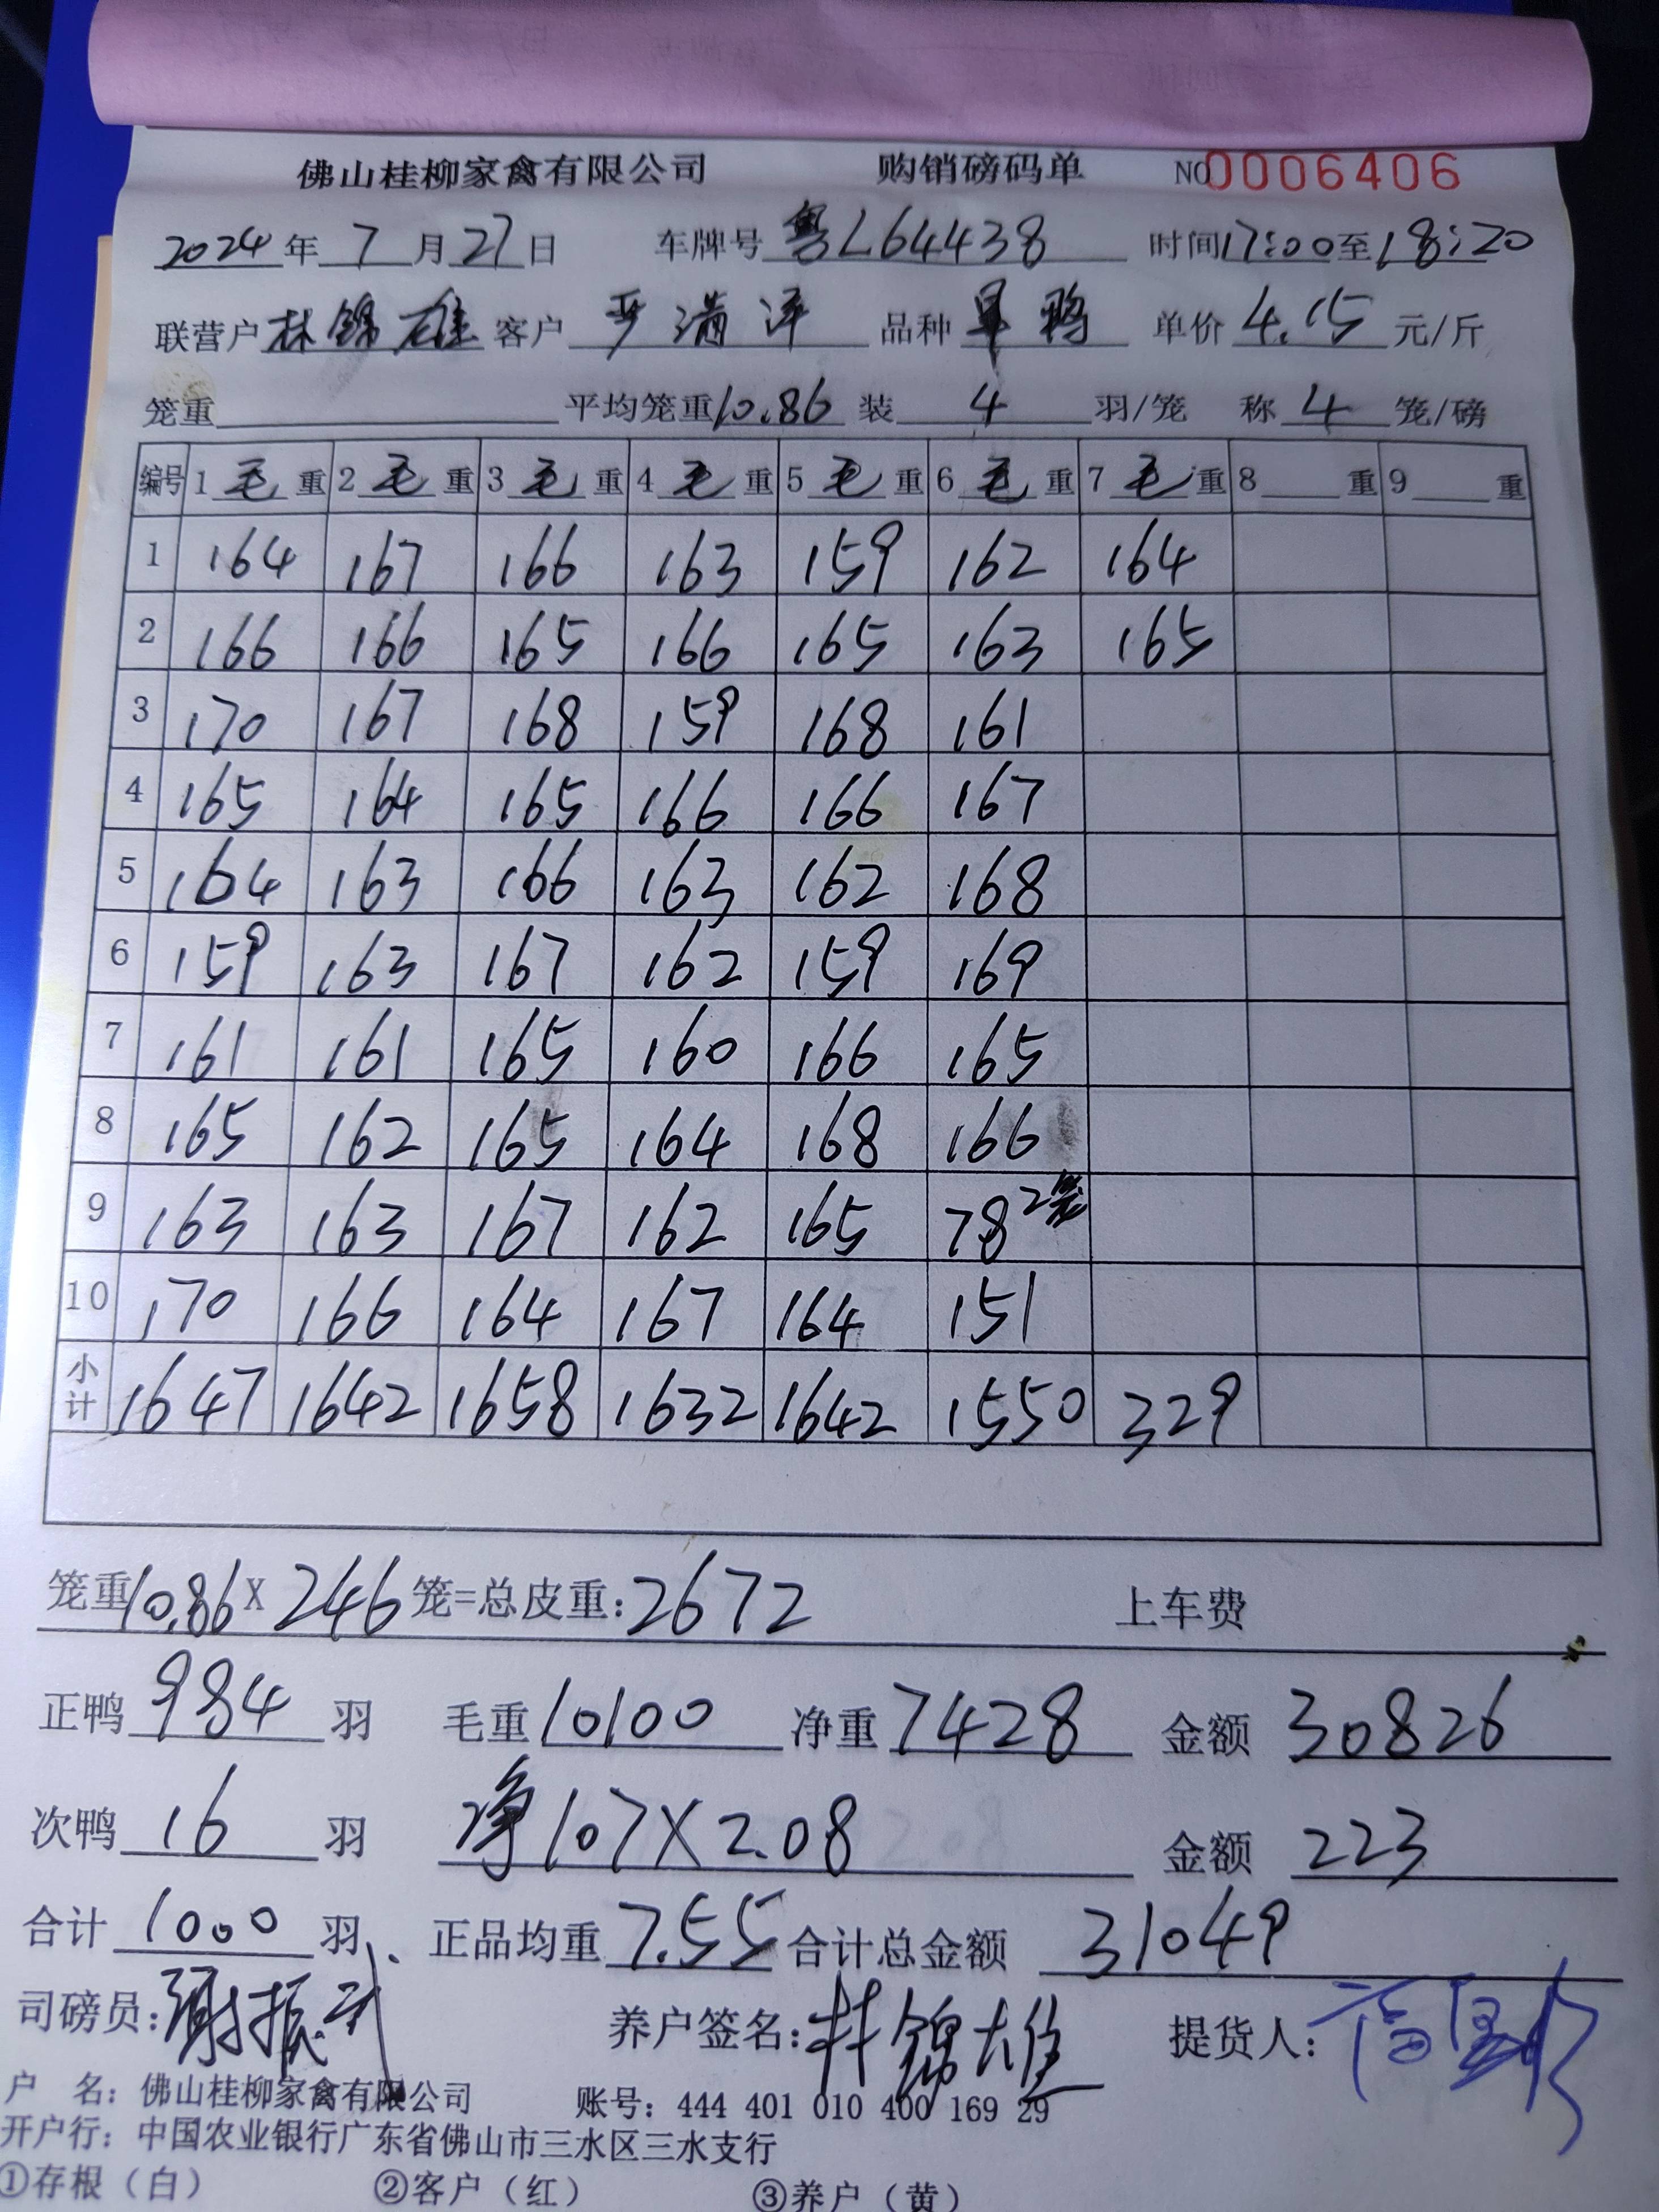 佛山桂柳家禽有限公司 购销磅码单 NO0006406
2024年7月27日 车牌号粤L64438 时间17:00至18:20
联营户林锦雄 客户严满洋 品种旱鸭 单价4.15元/斤
笼重 平均笼重10.86 装4羽/笼 称4笼/磅
编号 1毛重 2毛重 3毛重 4毛重 5毛重 6毛重 7毛重 8重 9重
1 164 167 166 163 159 162 164
2 166 166 165 166 165 163 165
3 170 167 168 159 168 161
4 165 164 165 166 166 167
5 164 163 166 163 162 168
6 159 163 167 162 159 169
7 161 161 165 160 166 165
8 165 162 165 164 168 166
9 163 163 167 162 165 78 2笼
10 170 166 164 167 164 151
小计 1647 1642 1658 1632 1642 1550 329
笼重10.86X246笼=总皮重:2672 上车费
正鸭984羽 毛重10100 净重7428 金额30826
次鸭16羽 净107X2.08 金额223
合计1000羽 正品均重7.55 合计总金额31049
司磅员:谢振 养户签名:林锦雄 提货人:
户 名:佛山桂柳家禽有限公司 账号:444 401 010 400 169 29
开户行:中国农业银行广东省佛山市三水区三水支行
①存根(白) ②客户(红) ③养户(黄)